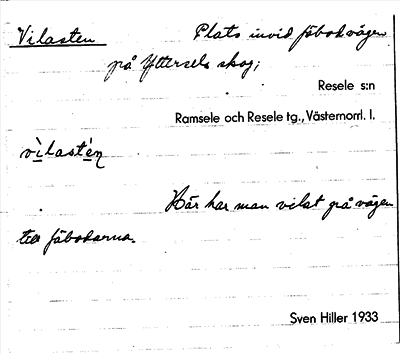 Vilasten Plats invid fäbodvägen
på Yttersels skog;
Resele s:n
Ramsele och Resele tg., Västernorrl. l.
vìlastèn
Här har man vilat på vägen
till fäbodarna.
Sven Hiller 1933